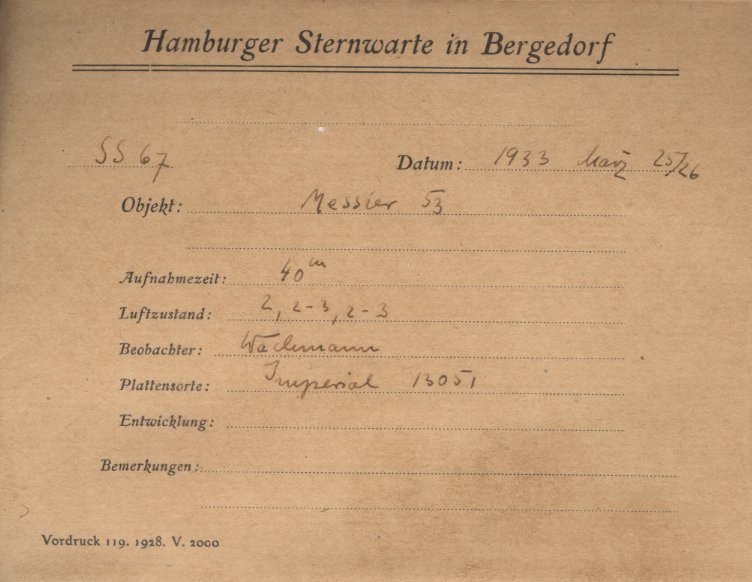 Hamburger Sternwarte in Bergedorf
SS 67 Datum: 1933 März 25/26
Objekt: Messier 53
Aufnahmezeit: 40m
Luftzustand: 2, 2-3, 2-3
Beobachter: Wachmann
Plattensorte: Imperial 13051
Entwicklung:
Bemerkungen:
Vordruck 119. 1928. V. 2000